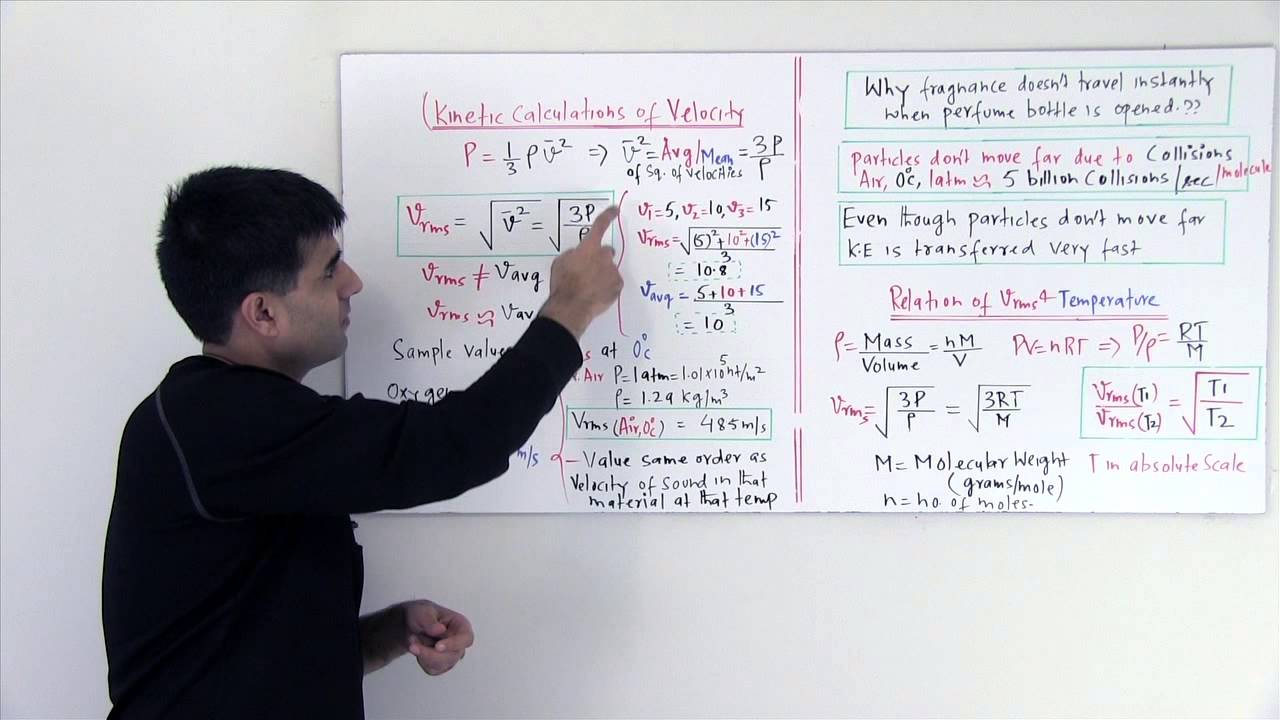 (Kinetic Calculations of Velocity
P = 1/3 ρ v̄² => v̄² = Avg/Mean of Sq. of velocities = 3P/ρ
Vrms = √v̄² = √3P/ρ
Vrms ≠ Vavg
Vrms ≈
Sample at 0°c
v1=5, v2=10, v3=15
Vrms = √(5)²+10²+(15)²/3
= 10.8
Vavg = 5+10+15/3
= 10
Air P=1atm=1.01×10⁵nt/m²
ρ = 1.29 kg/m³
Vrms (Air,0°c) = 485m/s
m/s
– Value same order as
velocity of sound in that
material at that temp
Why fragnance doesn't travel instantly
when perfume bottle is opened.??
particles don't move far due to Collisions
Air, 0°c, 1atm ≈ 5 billion Collisions/sec/molecule
Even though particles don't move far
K.E is transferred very fast
Relation of Vrms & Temperature
ρ = Mass/Volume = nM/V PV=nRT => P/ρ = RT/M
Vrms = √3P/ρ = √3RT/M
Vrms(T1)/Vrms(T2) = √T1/T2
M = Molecular Weight
(grams/mole)
n = no. of moles.
T in absolute Scale